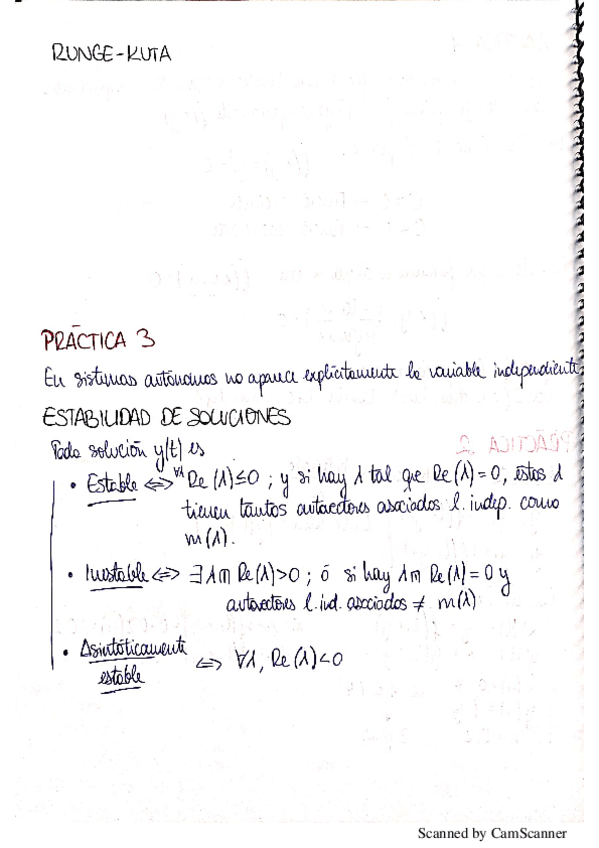 RUNGE-KUTA
PRÁCTICA 3
En sistemas autónomos no aparece explícitamente la variable independiente.
ESTABILIDAD DE SOLUCIONES
Toda solución y(t) es
• Estable ⟺ ∀λ Re(λ)≤0 ; y si hay λ tal que Re(λ)=0, estos λ
tienen tantos autovectores asociados l. indep. como
m(λ).
• Inestable ⟺ ∃ λ m Re(λ)>0 ; ó si hay λ m Re(λ)=0 y
autovectores l. ind. asociados ≠ m(λ)
• Asintóticamente
estable ⟺ ∀λ, Re(λ)<0
PRÁCTICA 2
Scanned by CamScanner